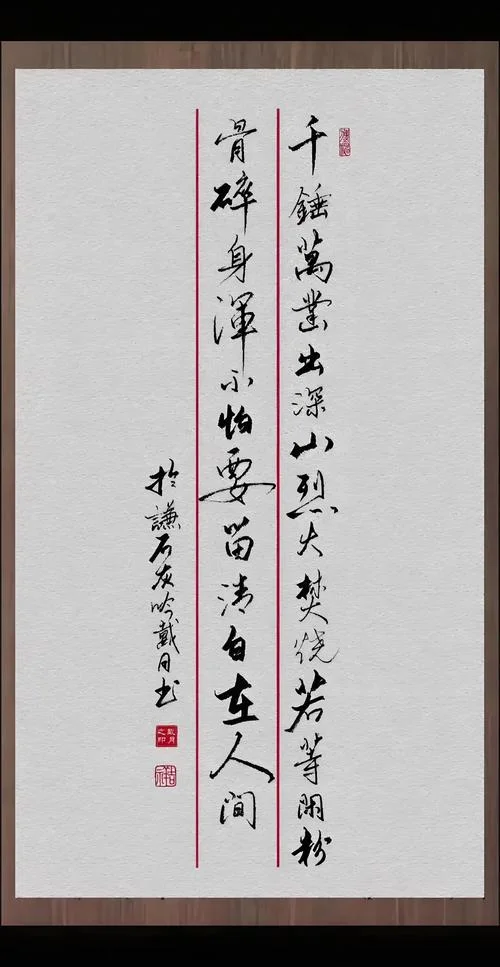 千錘萬鑿出深山烈火焚燒若等閑粉
骨碎身渾不怕要留清白在人間
於謙石灰吟戴月书
戴月之印